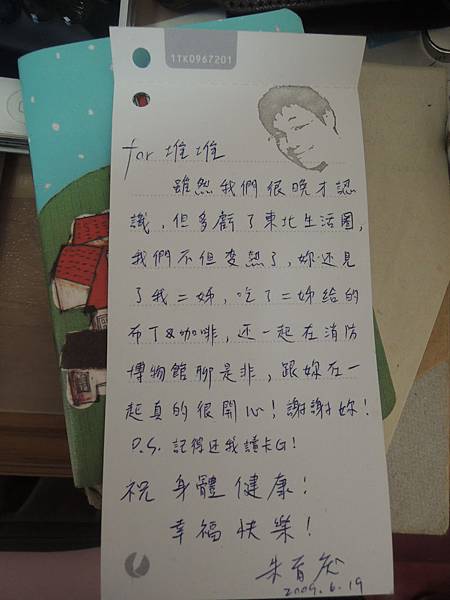 1TK0967201
for 堆堆
雖然我們很晚才認
識，但多虧了東北生活圈，
我們不但變熟了，妳還見
了我二姊，吃了二姊給的
布丁&咖啡，还一起在消防
博物館聊是非，跟妳在一
起真的很開心！謝謝妳！
P.S. 記得还我讀卡G!
祝 身體健康！
幸福快樂！
朱育
2009.6.19